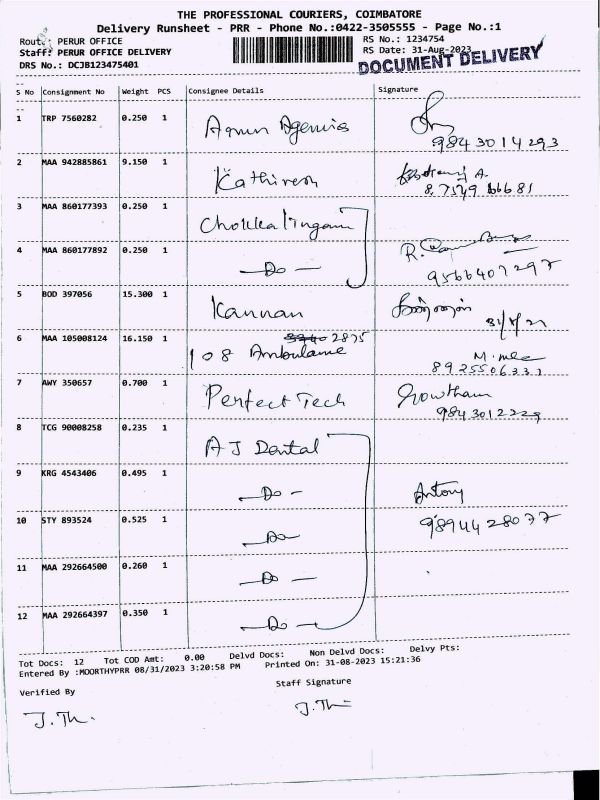 THE PROFESSIONAL COURIERS, COIMBATORE
Delivery Runsheet - PRR - Phone No.:0422-3505555 - Page No.:1
Route: PERUR OFFICE RS No.: 1234754
Staff: PERUR OFFICE DELIVERY RS Date: 31-Aug-2023
DRS No.: DCJB123475401 DOCUMENT DELIVERY
S No Consignment No Weight PCS Consignee Details Signature
1 TRP 7560282 0.250 1
9843014293
2 MAA 942885861 9.150 1 Kathiresh
3 MAA 860177393 0.250 1 Chokkalingam
4 MAA 860177892 0.250 1 —Do—
9566407297
5 BOD 397056 15.300 1 Kannan
6 MAA 105008124 16.150 1 2875
108 Ambulance
8925506331
7 AWY 350657 0.700 1 Perfect Tech Gowtham
8 TCG 90008258 0.235 1 AJ Dental
9 KRG 4543406 0.495 1 —Do— Antony
10 STY 893524 0.525 1 —Do— 9894428077
11 MAA 292664500 0.260 1 —Do—
12 MAA 292664397 0.350 1 —Do—
Tot Docs: 12 Tot COD Amt: 0.00 Delvd Docs: Non Delvd Docs: Delvy Pts:
Entered By :MOORTHYPRR 08/31/2023 3:20:58 PM Printed On: 31-08-2023 15:21:36
Verified By Staff Signature
J.Th. J.Th